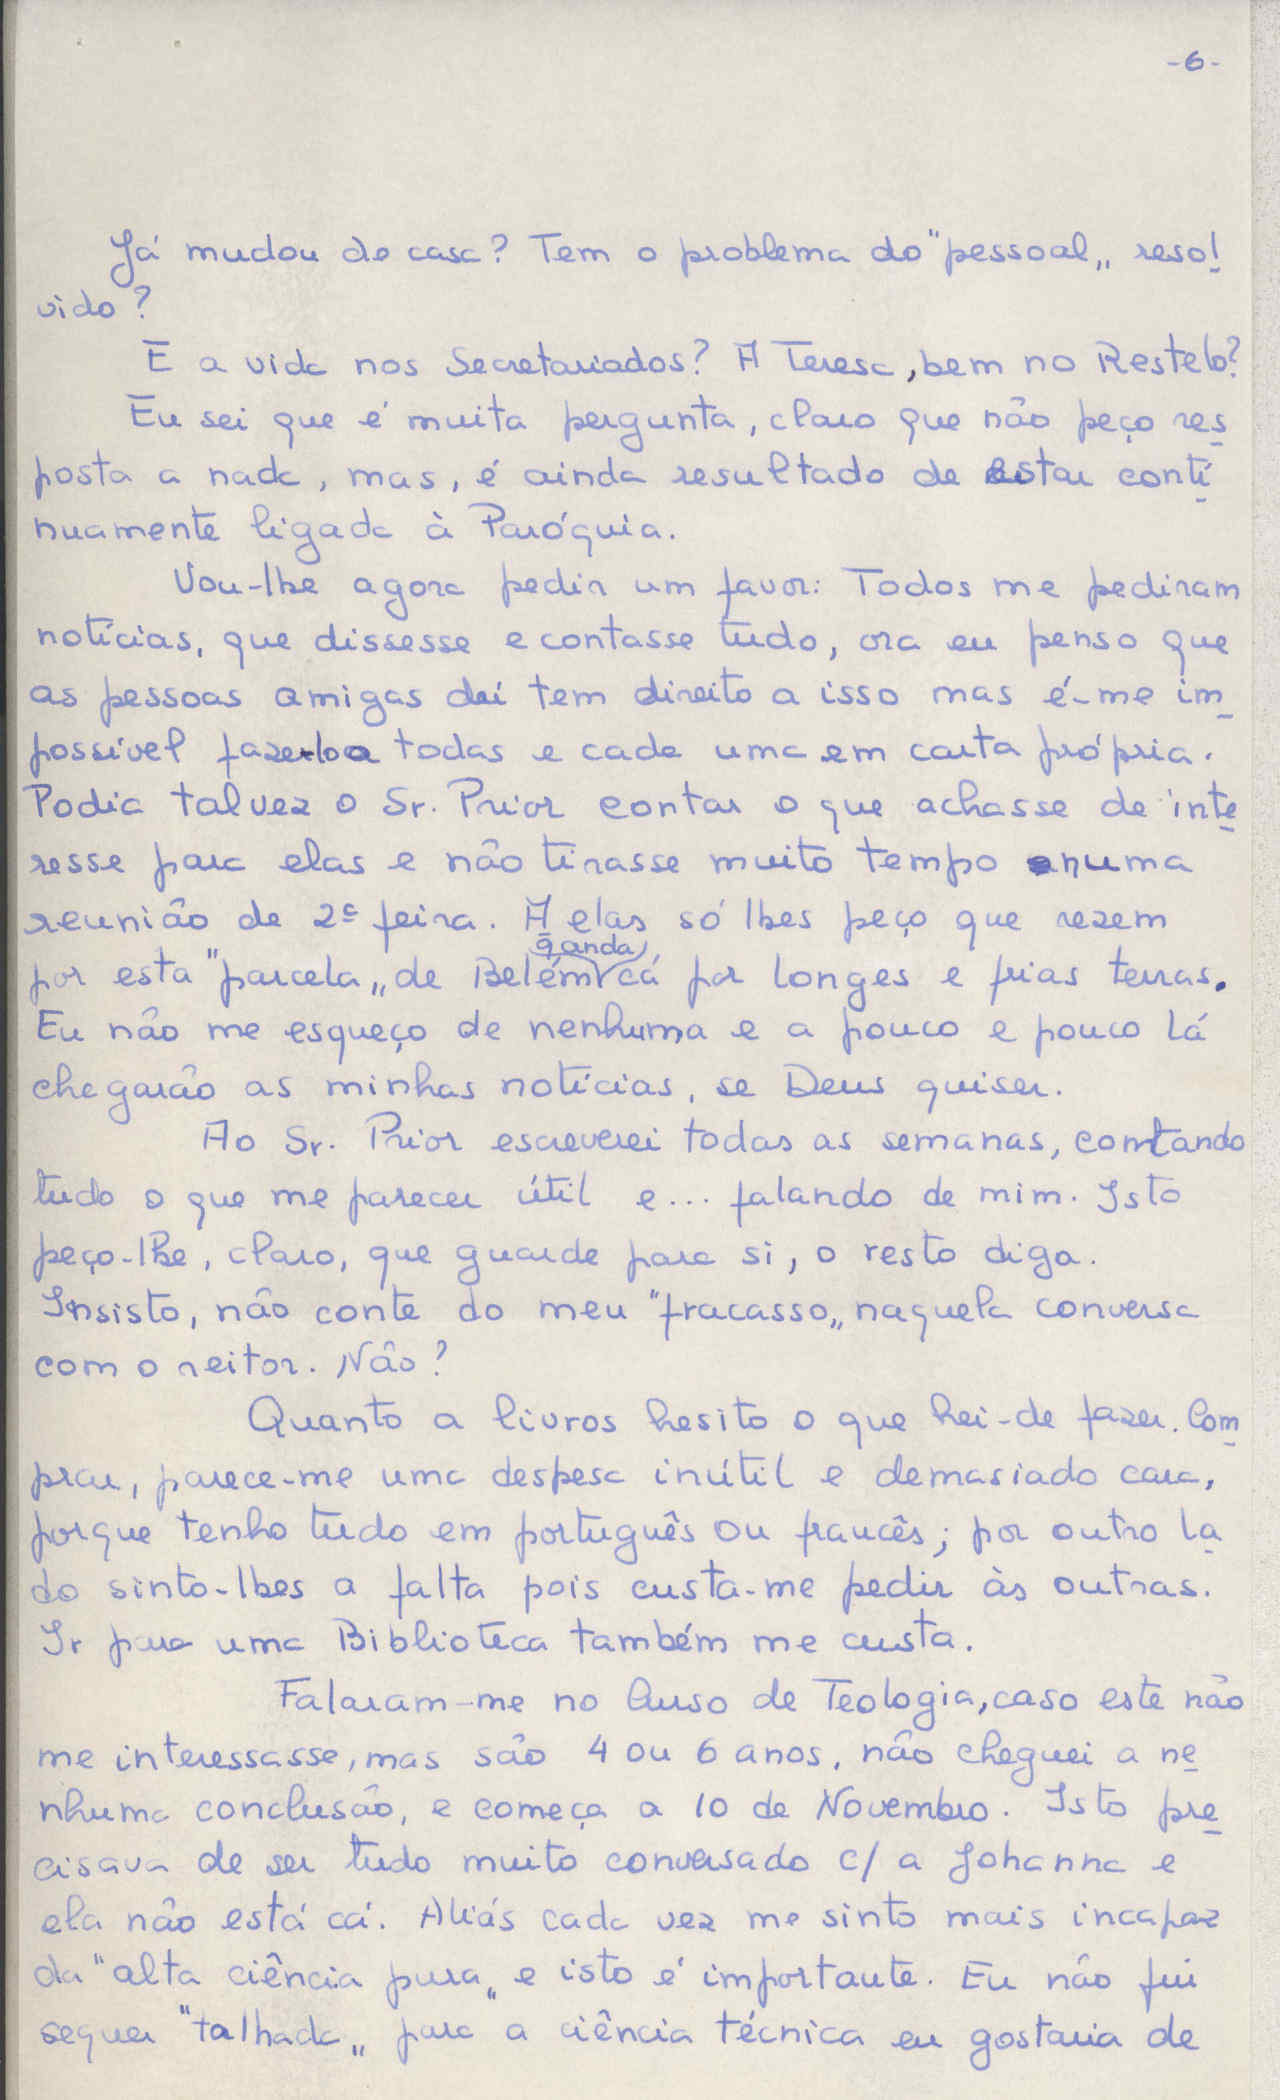 -6-
Já mudou de casa? Tem o problema do "pessoal" resol
vido?
E a vida nos Secretariados? A Teresa, bem no Restelo?
Eu sei que é muita pergunta, claro que não peço res
posta a nada, mas, é ainda resultado de estar contí
nuamente ligada à Paróquia.
Vou-lhe agora pedir um favor: Todos me pediram
notícias, que dissesse e contasse tudo, ora eu penso que
as pessoas amigas daí tem direito a isso mas é-me im
possível fazer-lo a todas e cada uma em carta própria.
Podia talvez o Sr. Prior contar o que achasse de inte
resse para elas e não tirasse muito tempo numa
reunião de 2ª feira. A elas só lhes peço que rezem
por esta "parcela" de Belém q anda cá por longes e frias terras.
Eu não me esqueço de nenhuma e a pouco e pouco lá
chegarão as minhas notícias, se Deus quiser.
Ao Sr. Prior escreverei todas as semanas, contando
tudo o que me parecer útil e... falando de mim. Isto
peço-lhe, claro, que guarde para si, o resto diga.
Insisto, não conte do meu "fracasso" naquela conversa
com o reitor. Não?
Quanto a livros hesito o que hei-de fazer. Com
prar, parece-me uma despesa inútil e demasiado cara,
porque tenho tudo em português ou francês; por outro la
do sinto-lhes a falta pois custa-me pedir às outras.
Ir para uma Biblioteca também me custa.
Falaram-me no Curso de Teologia, caso este não
me interessasse, mas são 4 ou 6 anos, não cheguei a ne
nhuma conclusão, e começa a 10 de Novembro. Isto pre
cisava de ser tudo muito conversado c/ a Johanna e
ela não está cá. Aliás cada vez me sinto mais incapaz
da "alta ciência pura" e isto é importante. Eu não fui
sequer "talhada" para a ciência técnica eu gostaria de